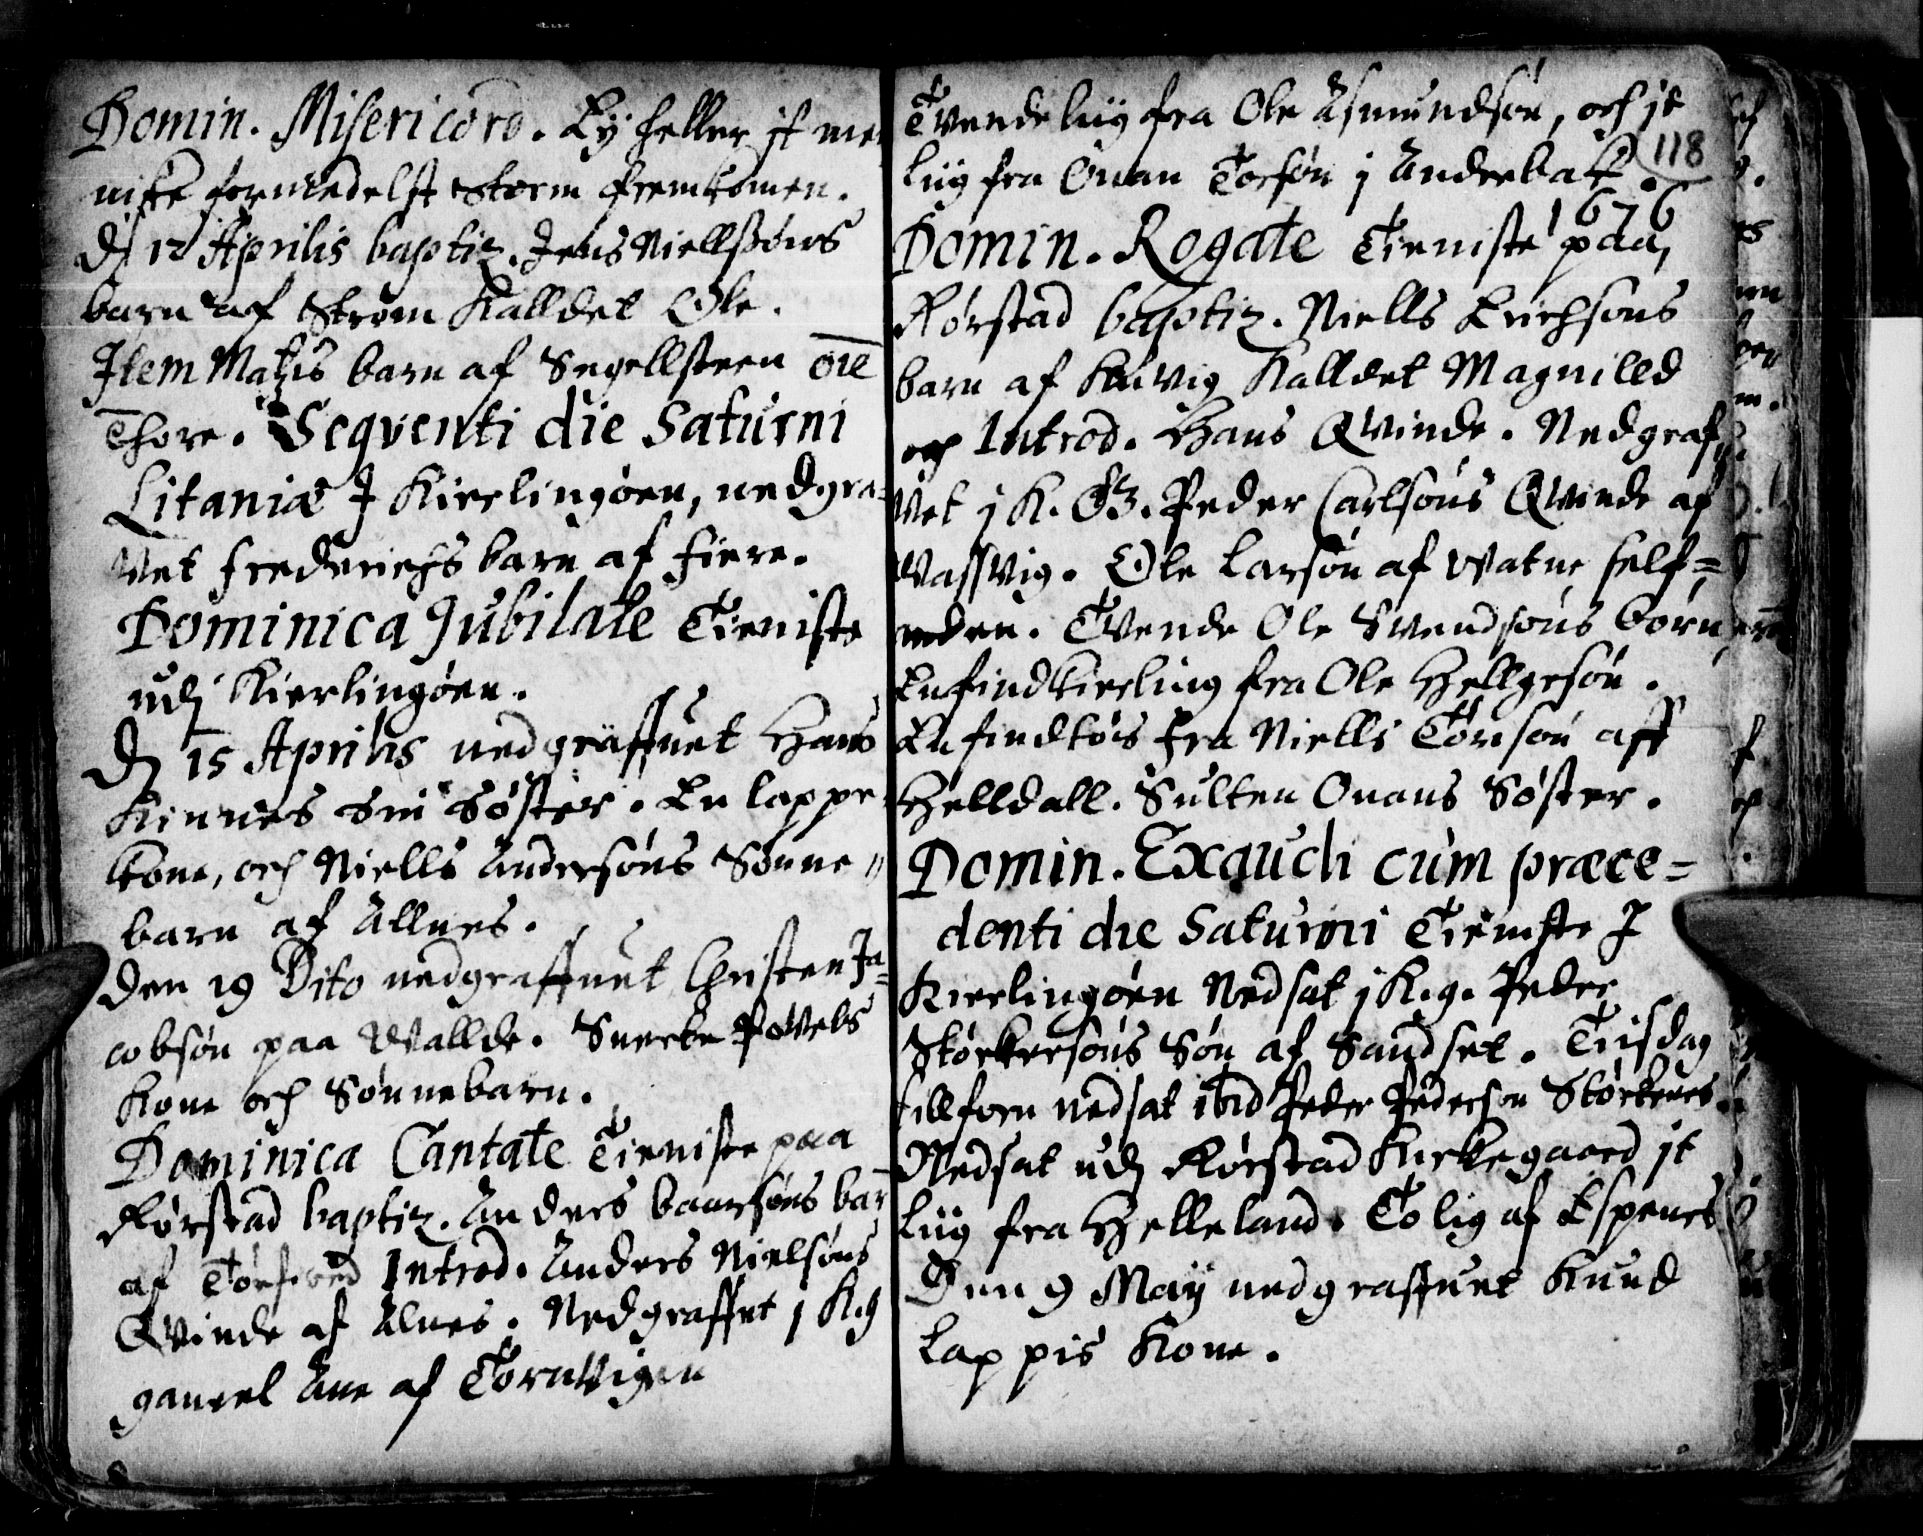 Domin. Misericord. Eÿ heller it me
niske formedelst Storm fremkomen.
D. 12 Aprilis baptiz. Jens Niellssøns
barn af Strøm Kalldet Ole.
Item Matzis barn af Segellsteen
Thore. Seqventi die Saturni
Litaniæ J Kierlingøen, nedgra=
vet frederichs barn af fiere.
Dominica Jubilate Tieniste
udj Kierlingøen.
D. 15 Aprilis nedgraffuet Hans
Kinnes Sin Søster. En lappe
kone, och Niells Andersøns Sønne
barn af Allnes.
Den 19 Dito nedgraffuet Christen Ja=
cobsøn paa Wallde. Snecke Povels
Kone och Sønnebarn.
Dominica Cantate Tieniste paa
Rørstad baptiz. Anders baarsøns bar
af Introd. Anders Nielsøns
Qvinde af Alnes. Nedgraffvet j K.g
gamel Ane af Tornvigen
Tvende liig fra Ole Asmundsøn, och jt
118
liig fra Onan Torsøn j Anderbak.
1676
Domin. Rogate Tieniste paa,
Rørstad baptiz. Niells Erichsøns
barn af Kalvig Kalldet Magnilld
och Introd. Hans Qvinde. Nedgraf
Vet j K. G. Peder Carlsøns Qvinde af
Vassvig. Ole Larsøn af Vatne self=
anden. Tvende Ole Svendsøns børn
En findkierling fra Ole Hellgesøn.
En findtøs fra Niells Tørisøn aff
Helldall. Sulten Onans Søster.
Domin. Exaudi cum præce=
denti die Saturni Tieniste J
Kierlingøen Nedsat j K.g. Peder
Størkersøns Søn af Sandset. Tiisdag
tillforn nedsat ibid Peder Pedersøn Størkers.
Nedsat udj Rørstad Kirkegaard jt
Liig fra Helleland. To lig af Espenes
Den 9 Maÿ nedgraffuet Knud
Lappis Kone.